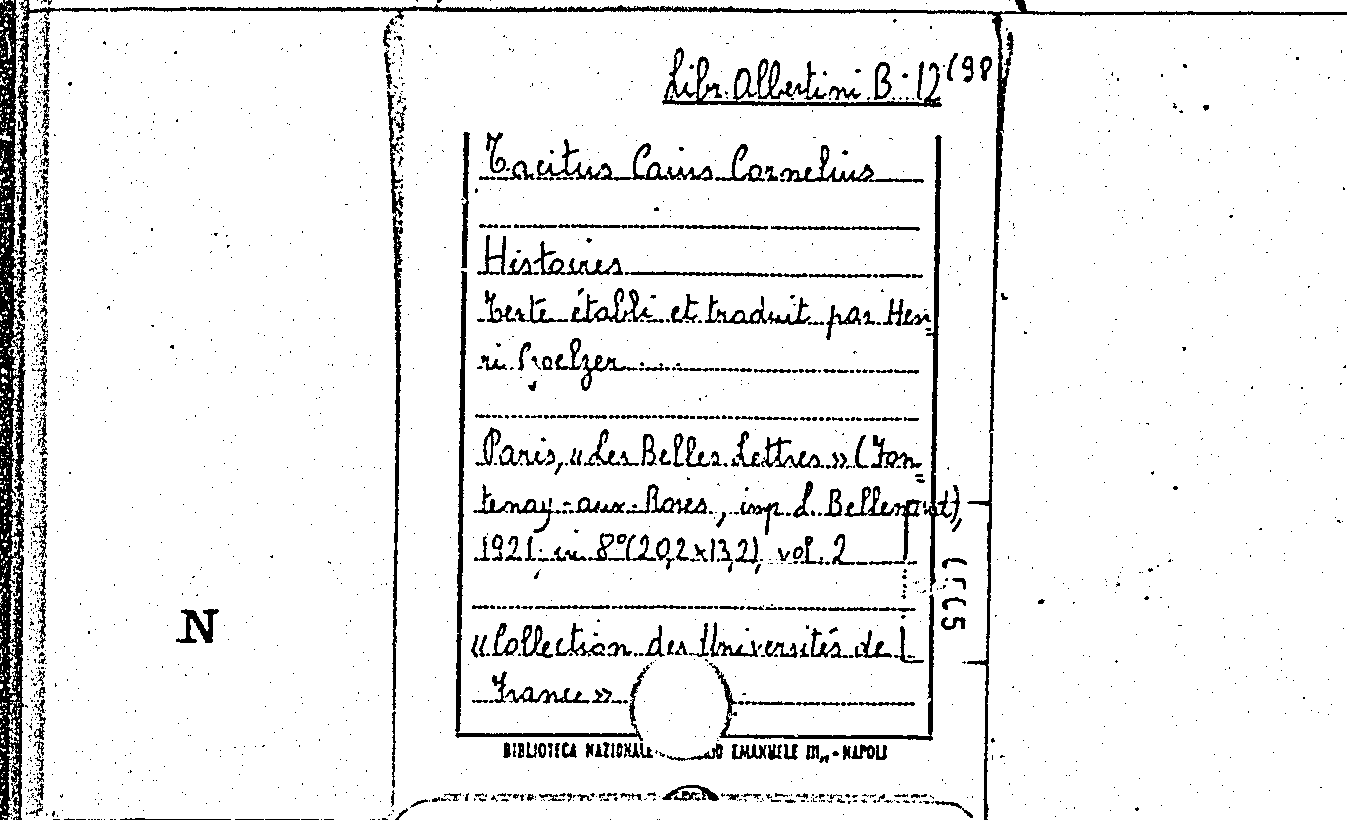 Libr. Albertini B. 12 (98
Tacitus Caius Cornelius
Histoires
Texte établi et traduit par Hen=
ri Goelzer
Paris, «Les Belles Lettres» (Fon=
tenay-aux-Roses, imp. L. Bellenant),
1921, in 8° (20,2x13,2), vol. 2
«Collection des Universités de
France»
BIBLIOTECA NAZIONALE EMANUELE III„ - NAPOLI
N